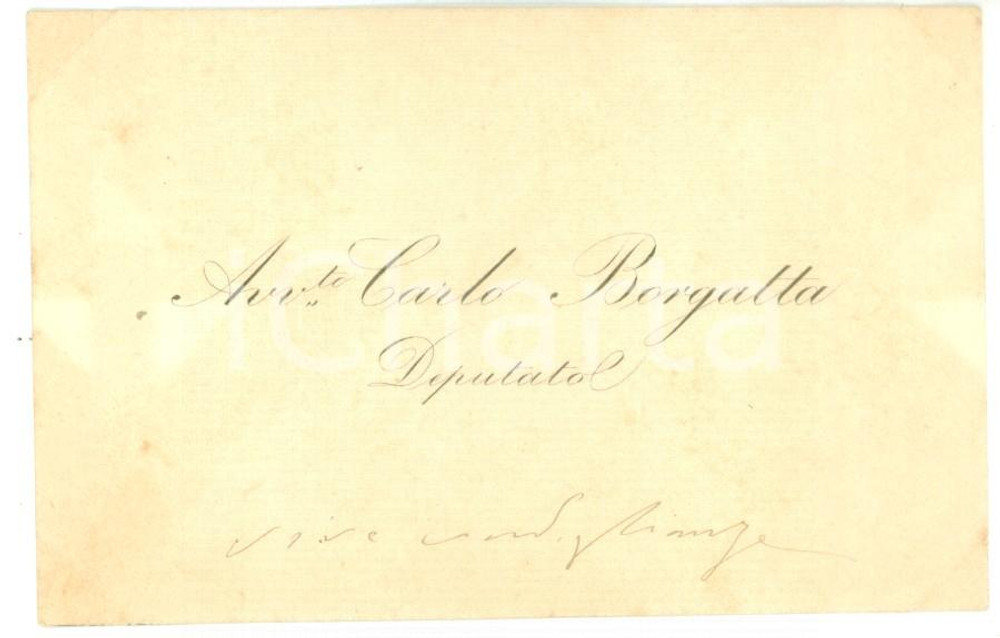 Avv.to Carlo Borgatta
Deputato
vive condoglianze
iCharta